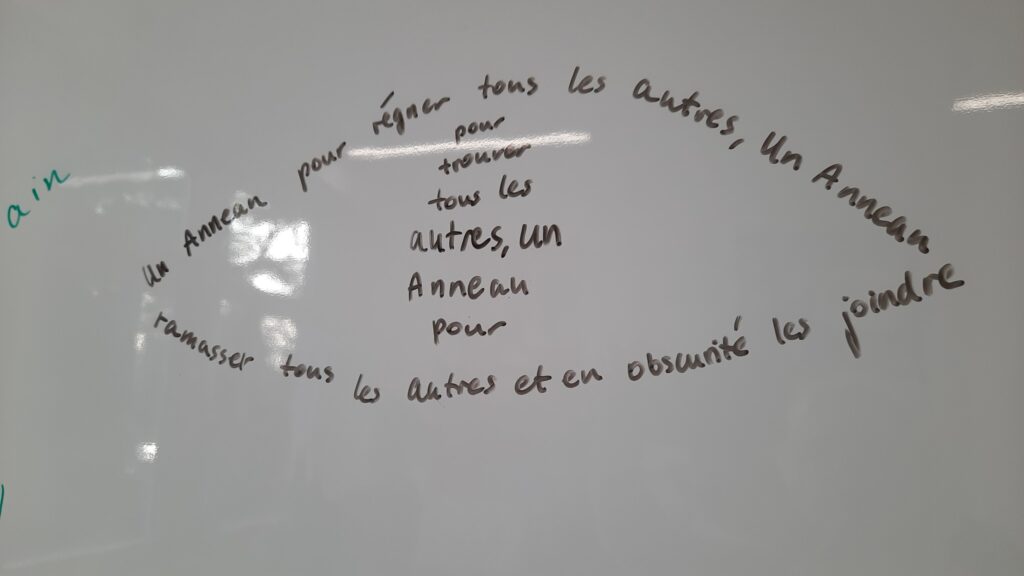 Un Anneau pour régner tous les autres, Un Anneau
pour
trouver
tous les
autres, un
Anneau
pour
ramasser tous les autres et en obscurité les joindre
ain